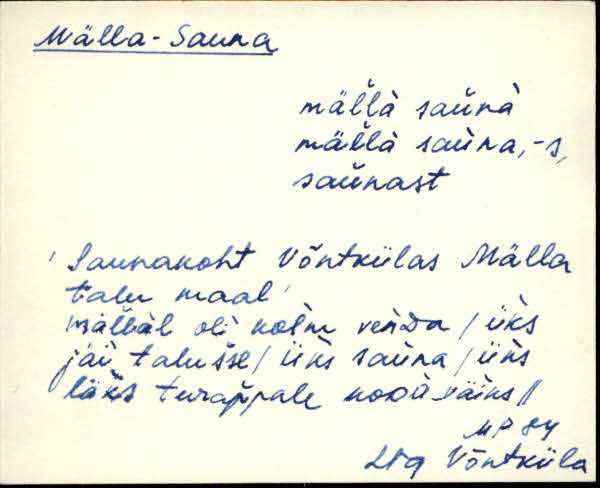 Mälla-Sauna
mäl̆l̆à saŭnà
mäl̆l̆à saùna, -s,
saŭnast
'Saunakoht Võntkülas Mälla
talu maal'
mäl̆l̆àl oli kolm venda / üks
jäi talusse / üks sauna / üks
läks turappale koduväiks //
MP 84
Lüg Võntküla